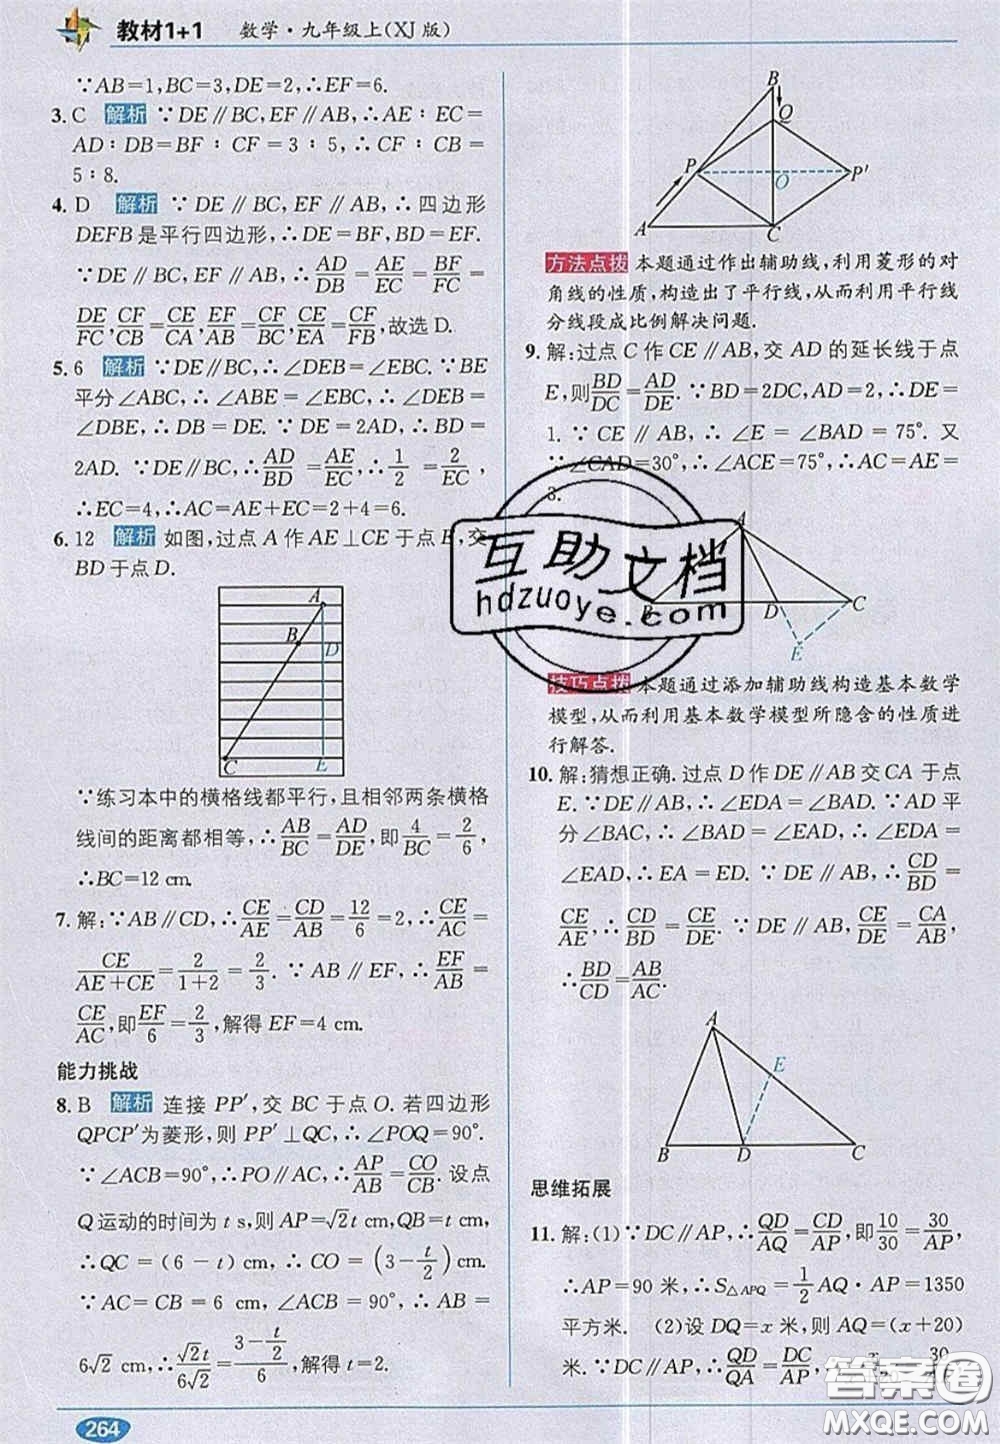 教材1+1 数学·九年级上(XJ版)
∵AB=1,BC=3,DE=2,∴EF=6.
3.C 解析 ∵DE∥BC,EF∥AB,∴AE∶EC=
AD∶DB=BF∶CF=3∶5,∴CF∶CB=
5∶8.
4.D 解析 ∵DE∥BC,EF∥AB,∴四边形
DEFB是平行四边形,∴DE=BF,BD=EF.
∵DE∥BC,EF∥AB,∴AD/DB=AE/EC=BF/FC=
DE/FC,CF/FB=CE/EA=CF/BF,CE/EA=CF/FB,故选D.
5.6 解析 ∵DE∥BC,∴∠DEB=∠EBC.∵BE
平分∠ABC,∴∠ABE=∠EBC,∴∠DEB=
∠DBE,∴DB=DE.∵DE=2AD,∴BD=
2AD.∵DE∥BC,∴AD/BD=AE/EC,∴1/2=2/EC,
∴EC=4,∴AC=AE+EC=2+4=6.
6.12 解析 如图,过点A作AE⊥CE于点E,交
BD于点D.
A
B
D
C
E
∵练习本中的横格线都平行,且相邻两条横格
线间的距离都相等,∴AB/BC=AD/DE,即4/BC=2/6,
∴BC=12 cm.
7.解:∵AB∥CD,∴CE/AE=CD/AB=12/6=2,∴CE/AC=
CE/(AE+CE)=2/(1+2)=2/3.∵AB∥EF,∴EF/AB=
CE/AC,即EF/6=2/3,解得EF=4 cm.
能力挑战
8.B 解析 连接PP′,交BC于点O.若四边形
QPCP′为菱形,则PP′⊥QC,∴∠POQ=90°.
∵∠ACB=90°,∴PO∥AC,∴AP/AB=CO/CB.设点
Q运动的时间为t s,则AP=√2t cm,QB=t cm,
∴QC=(6-t)cm,∴CO=(3-t/2)cm.
∵AC=CB=6 cm,∠ACB=90°,∴AB=
6√2 cm,∴√2t/6√2=(3-t/2)/6,解得t=2.
264
B
Q
P
O
P′
A
C
方法点拨 本题通过作出辅助线,利用菱形的对
角线的性质,构造出了平行线,从而利用平行线
分线段成比例解决问题.
9.解:过点C作CE∥AB,交AD的延长线于点
E,则BD/DC=AD/DE.∵BD=2DC,AD=2,∴DE=
1.∵CE∥AB,∴∠E=∠BAD=75°.又
∵∠CAD=30°,∴∠ACE=75°,∴AC=AE=
3.
A
B
D
C
E
技巧点拨 本题通过添加辅助线构造基本数学
模型,从而利用基本数学模型所隐含的性质进
行解答.
10.解:猜想正确.过点D作DE∥AB交CA于点
E.∵DE∥AB,∴∠EDA=∠BAD.∵AD平
分∠BAC,∴∠EAD=∠BAD,∴∠EDA=
∠EAD,∴EA=ED.∵DE∥AB,∴CD/BD=
CE/AE,∴CD/BD=CE/DE.∵DE∥AB,∴CE/DE=CA/AB,
∴BD/CD=AB/AC.
A
E
B
D
C
思维拓展
11.解:(1)∵DC∥AP,∴QD/AQ=CD/AP,即10/30=30/AP,
∴AP=90米,∴S△APQ=1/2AQ·AP=1350
平方米. (2)设DQ=x米,则AQ=(x+20)
米.∵DC∥AP,∴QD/QA=DC/AP,
互助文档
hdzuoye.com
答案圈
MXQE.COM